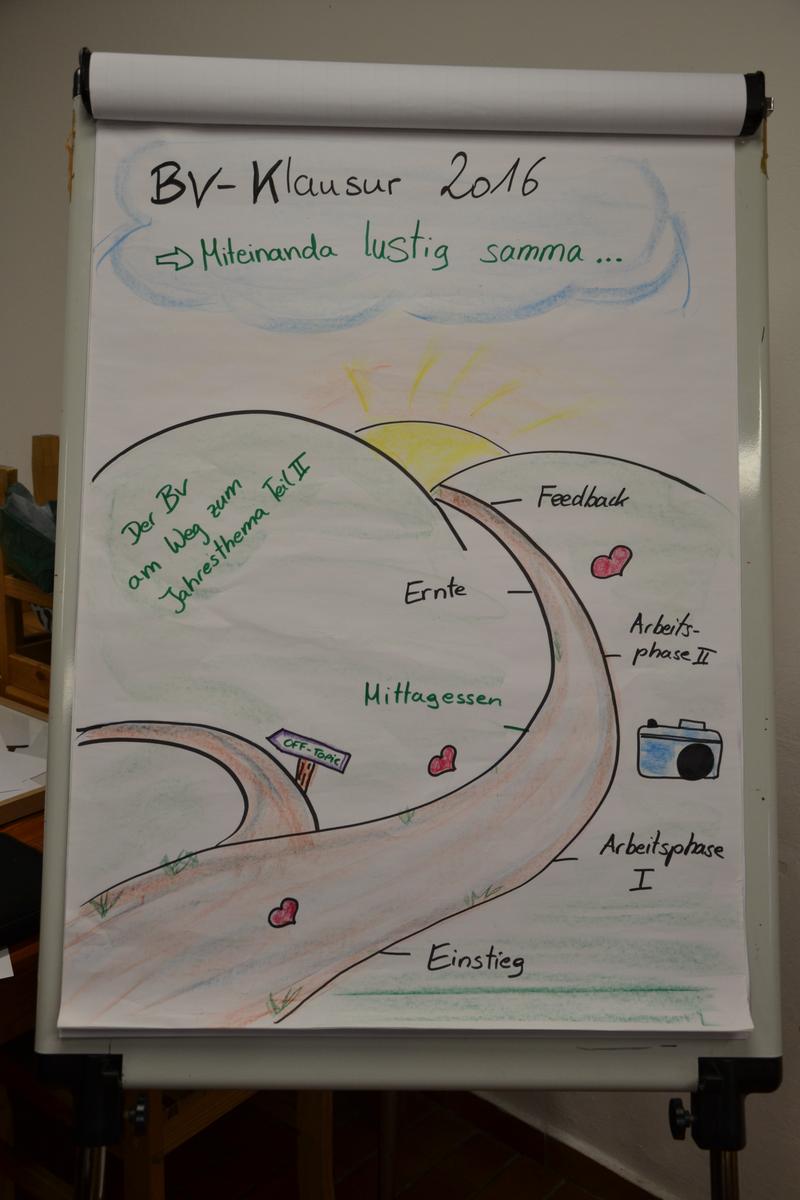 BV-Klausur 2016
⇨ Miteinanda lustig samma...
Der BV
am Weg zum
Jahresthema Teil II
Feedback
Ernte
Arbeits-
phase II
Mittagessen
OFF-TOPIC
Arbeitsphase
I
Einstieg